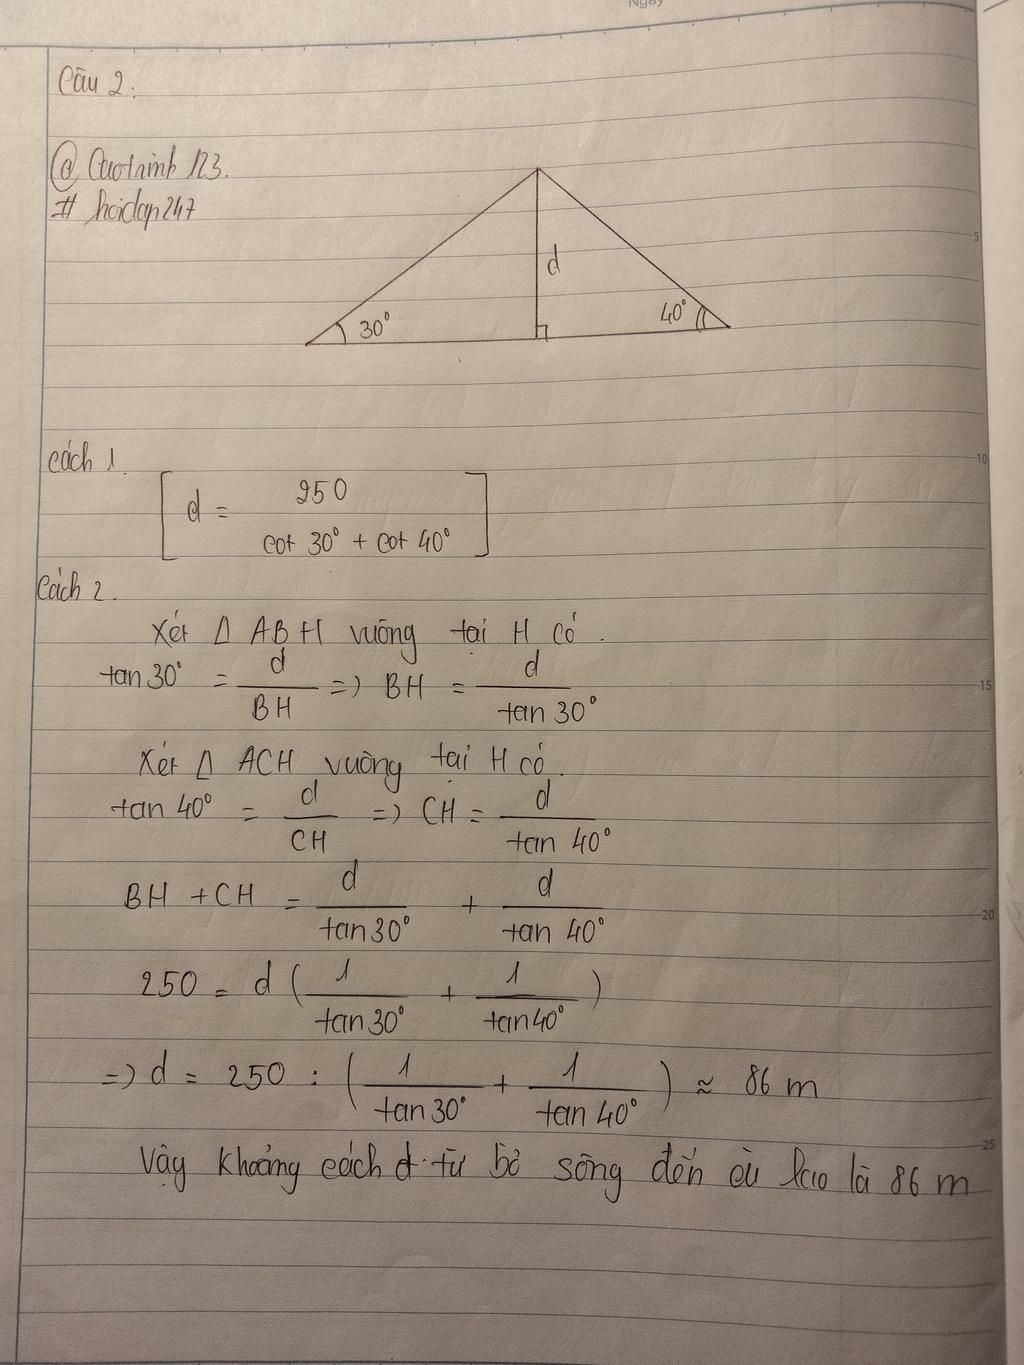 Ngày
Câu 2:
@ Caotninh 123.
# hoidap247
d
30° 40°
5
Cách 1.
10
d = 250 / cot 30° + cot 40°
Cách 2.
Xét Δ ABH vuông tại H có.
tan 30° = d / BH => BH = d / tan 30°
15
Xét Δ ACH vuông tại H có.
tan 40° = d / CH => CH = d / tan 40°
BH + CH = d / tan 30° + d / tan 40°
20
250 = d ( 1 / tan 30° + 1 / tan 40° )
=> d = 250 : ( 1 / tan 30° + 1 / tan 40° ) ≈ 86 m
25
Vậy khoảng cách d từ bờ sông đến cù lao là 86 m